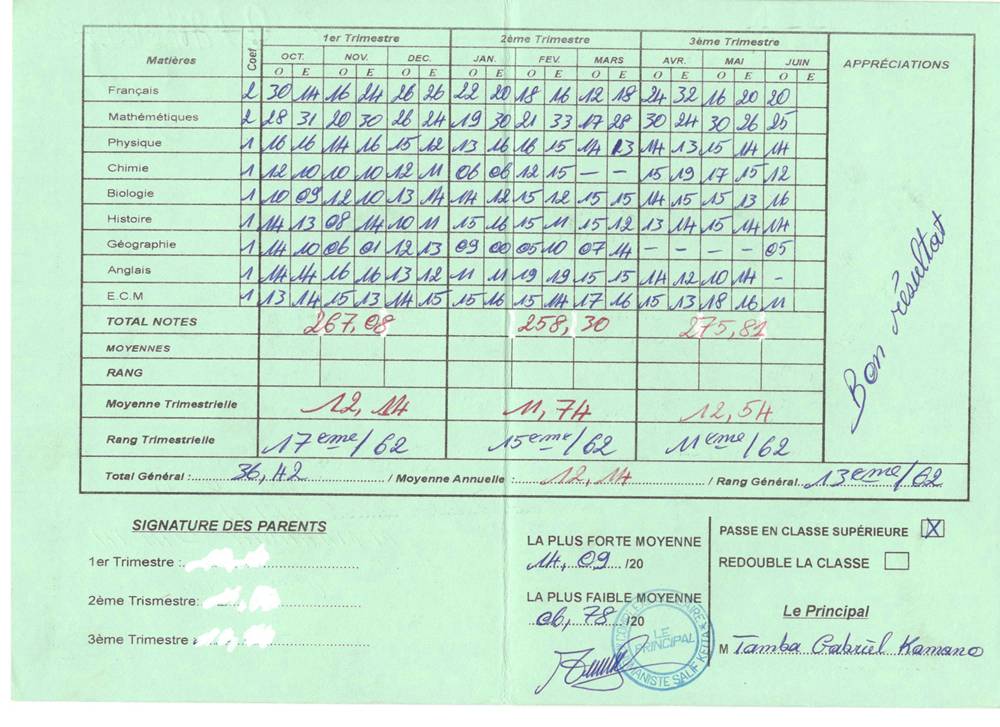 1er Trimestre 2ème Trimestre 3ème Trimestre
Matières Coef OCT. NOV. DEC. JAN. FEV. MARS AVR. MAI JUIN APPRÉCIATIONS
O E O E O E O E O E O E O E O E O E
Français 2 30 14 16 24 26 26 22 20 18 16 12 18 24 32 16 20 20
Mathémétiques 2 28 31 20 30 26 24 19 30 21 33 17 28 30 24 30 26 25
Physique 1 16 16 14 16 15 12 13 16 16 15 14 13 14 13 15 14 14
Chimie 1 12 10 10 10 12 11 06 06 12 15 — — 15 19 17 15 12
Biologie 1 10 09 12 10 13 14 14 12 15 12 15 15 14 15 15 13 16
Histoire 1 14 13 08 14 10 11 15 16 15 11 15 12 13 14 15 14 14
Géographie 1 14 10 06 01 12 13 09 00 05 10 07 14 — — — — 05
Anglais 1 14 14 16 16 13 12 11 11 19 19 15 15 14 12 10 14 -
E.C.M 1 13 14 15 13 14 15 15 16 15 14 17 16 15 13 18 16 11
Bon résultat
TOTAL NOTES 267,08 258,30 275,81
MOYENNES
RANG
Moyenne Trimestrielle 12,14 11,74 12,54
Rang Trimestrielle 17eme/62 15eme/62 11eme/62
Total Général :36,42 / Moyenne Annuelle :12,14 / Rang Général 13eme/62
SIGNATURE DES PARENTS
1er Trimestre :
2ème Trismestre:
3ème Trimestre
LA PLUS FORTE MOYENNE
14,09 /20
LA PLUS FAIBLE MOYENNE
06,78 /20
PASSE EN CLASSE SUPÉRIEURE X
REDOUBLE LA CLASSE
Le Principal
M Tamba Gabriel Kamano
LE
PRINCIPAL
SALIF KEITA